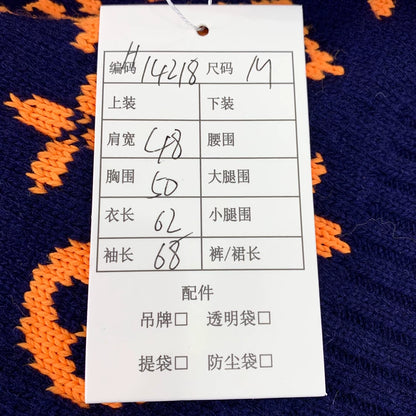 编码 H14218 尺码 M
上装 下装
肩宽 48 腰围
胸围 50 大腿围
衣长 62 小腿围
袖长 68 裤/裙长
配件
吊牌□ 透明袋□
提袋□ 防尘袋□